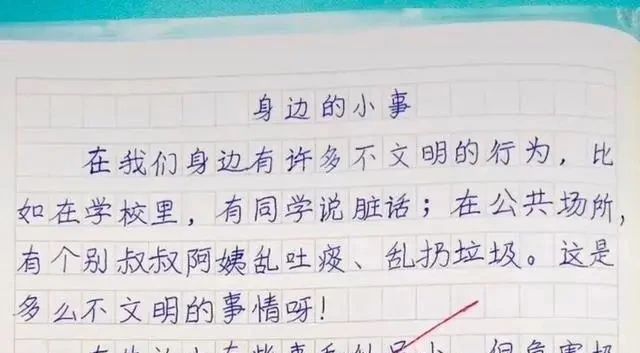 身边的小事
在我们身边有许多不文明的行为，比
如在学校里，有同学说脏话；在公共场所，
有个别叔叔阿姨乱吐痰、乱扔垃圾。这是
多么不文明的事情呀！